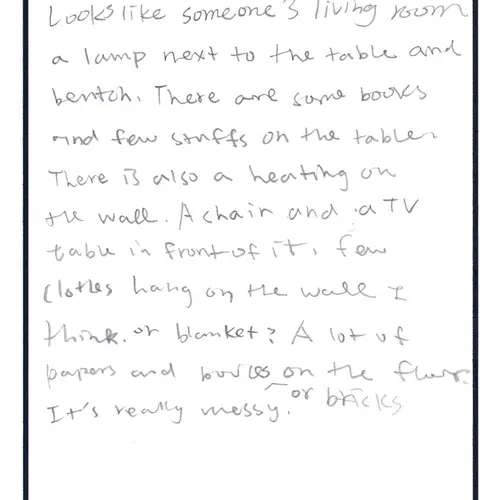 Looks like someone's living room
a lamp next to the table and
bentch. There are some books
and few stuffs on the table.
There is also a heating on
the wall. A chair and a TV
table in front of it. few
clothes hang on the wall I
think. or blanket? A lot of
papers and on the floor.
It's really messy. or bricks